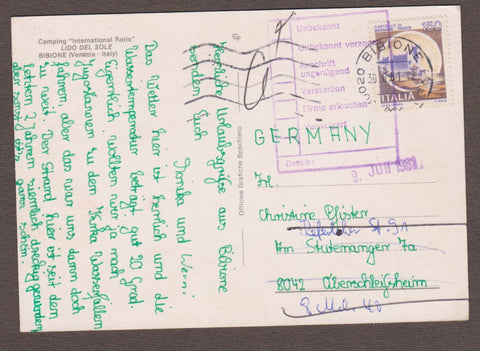 Camping "International Rotis"
LIDO DEL SOLE
BIBIONE (Venezia - Italy)
Herzliche Urlaubsgrüße aus Bibione
senden Euch
Monika und Werni
Das Wetter hier ist herrlich und die
Wassertemperatur beträgt gut 20 Grad.
Eigentlich wollten wir ja nach
Jugoslawien zu den Kerka Wasserfällen
fahren, aber das war uns dann doch
zu weit. Der Strand hier ist seit dem
letzten 2 Jahren ziemlich dreckig geworden,
aber sonst ganz schön.
Officine Grafiche Boschiero
Unbekannt
Unbekannt verzogen
Anschrift
ungenügend
Verstorben
Firma erloschen
Bezirk:
9. JUN 1981
CASTELLO DI
150
ITALIA
BIBIONE
GERMANY
Christine Pfister
Am Stutenanger 7a
8042 Oberschleißheim